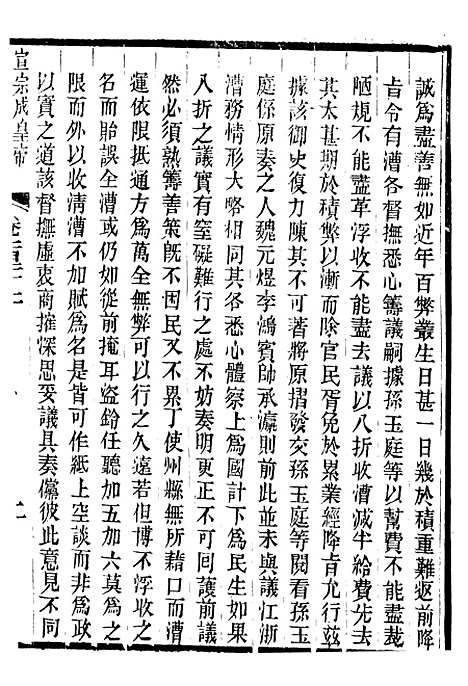 誠為盡善無如近年百弊叢生日甚一日幾於積重難返前降
旨令有漕各督撫悉心籌議嗣據孫玉庭等以幫費不能盡裁
陋規不能盡革浮收不能盡去議以八折收漕減半給費先去
其太甚期於積弊以漸而除官民胥免於累業經降旨允行茲
據該御史復力陳其不可著將原摺發交孫玉庭等閱看孫玉
庭係原奏之人魏元煜李鴻賓帥承瀛則前此並未與議江浙
漕務情形大略相同其各悉心體察上為國計下為民生如果
八折之議實有窒礙難行之處不妨奏明更正不可回護前議
然必須熟籌善策既不因民又不累丁使州縣無所藉口而漕
運依限抵通方為萬全無弊可以行之久遠若但博不浮收之
名而貽誤全漕或仍如從前掩耳盜鈴任聽加五加六莫為之
限而外以收清漕不加賦為名是皆可作紙上空談而非為政
以實之道該督撫虛衷商搉深思妥議具奏儻彼此意見不同
宣宗成皇帝